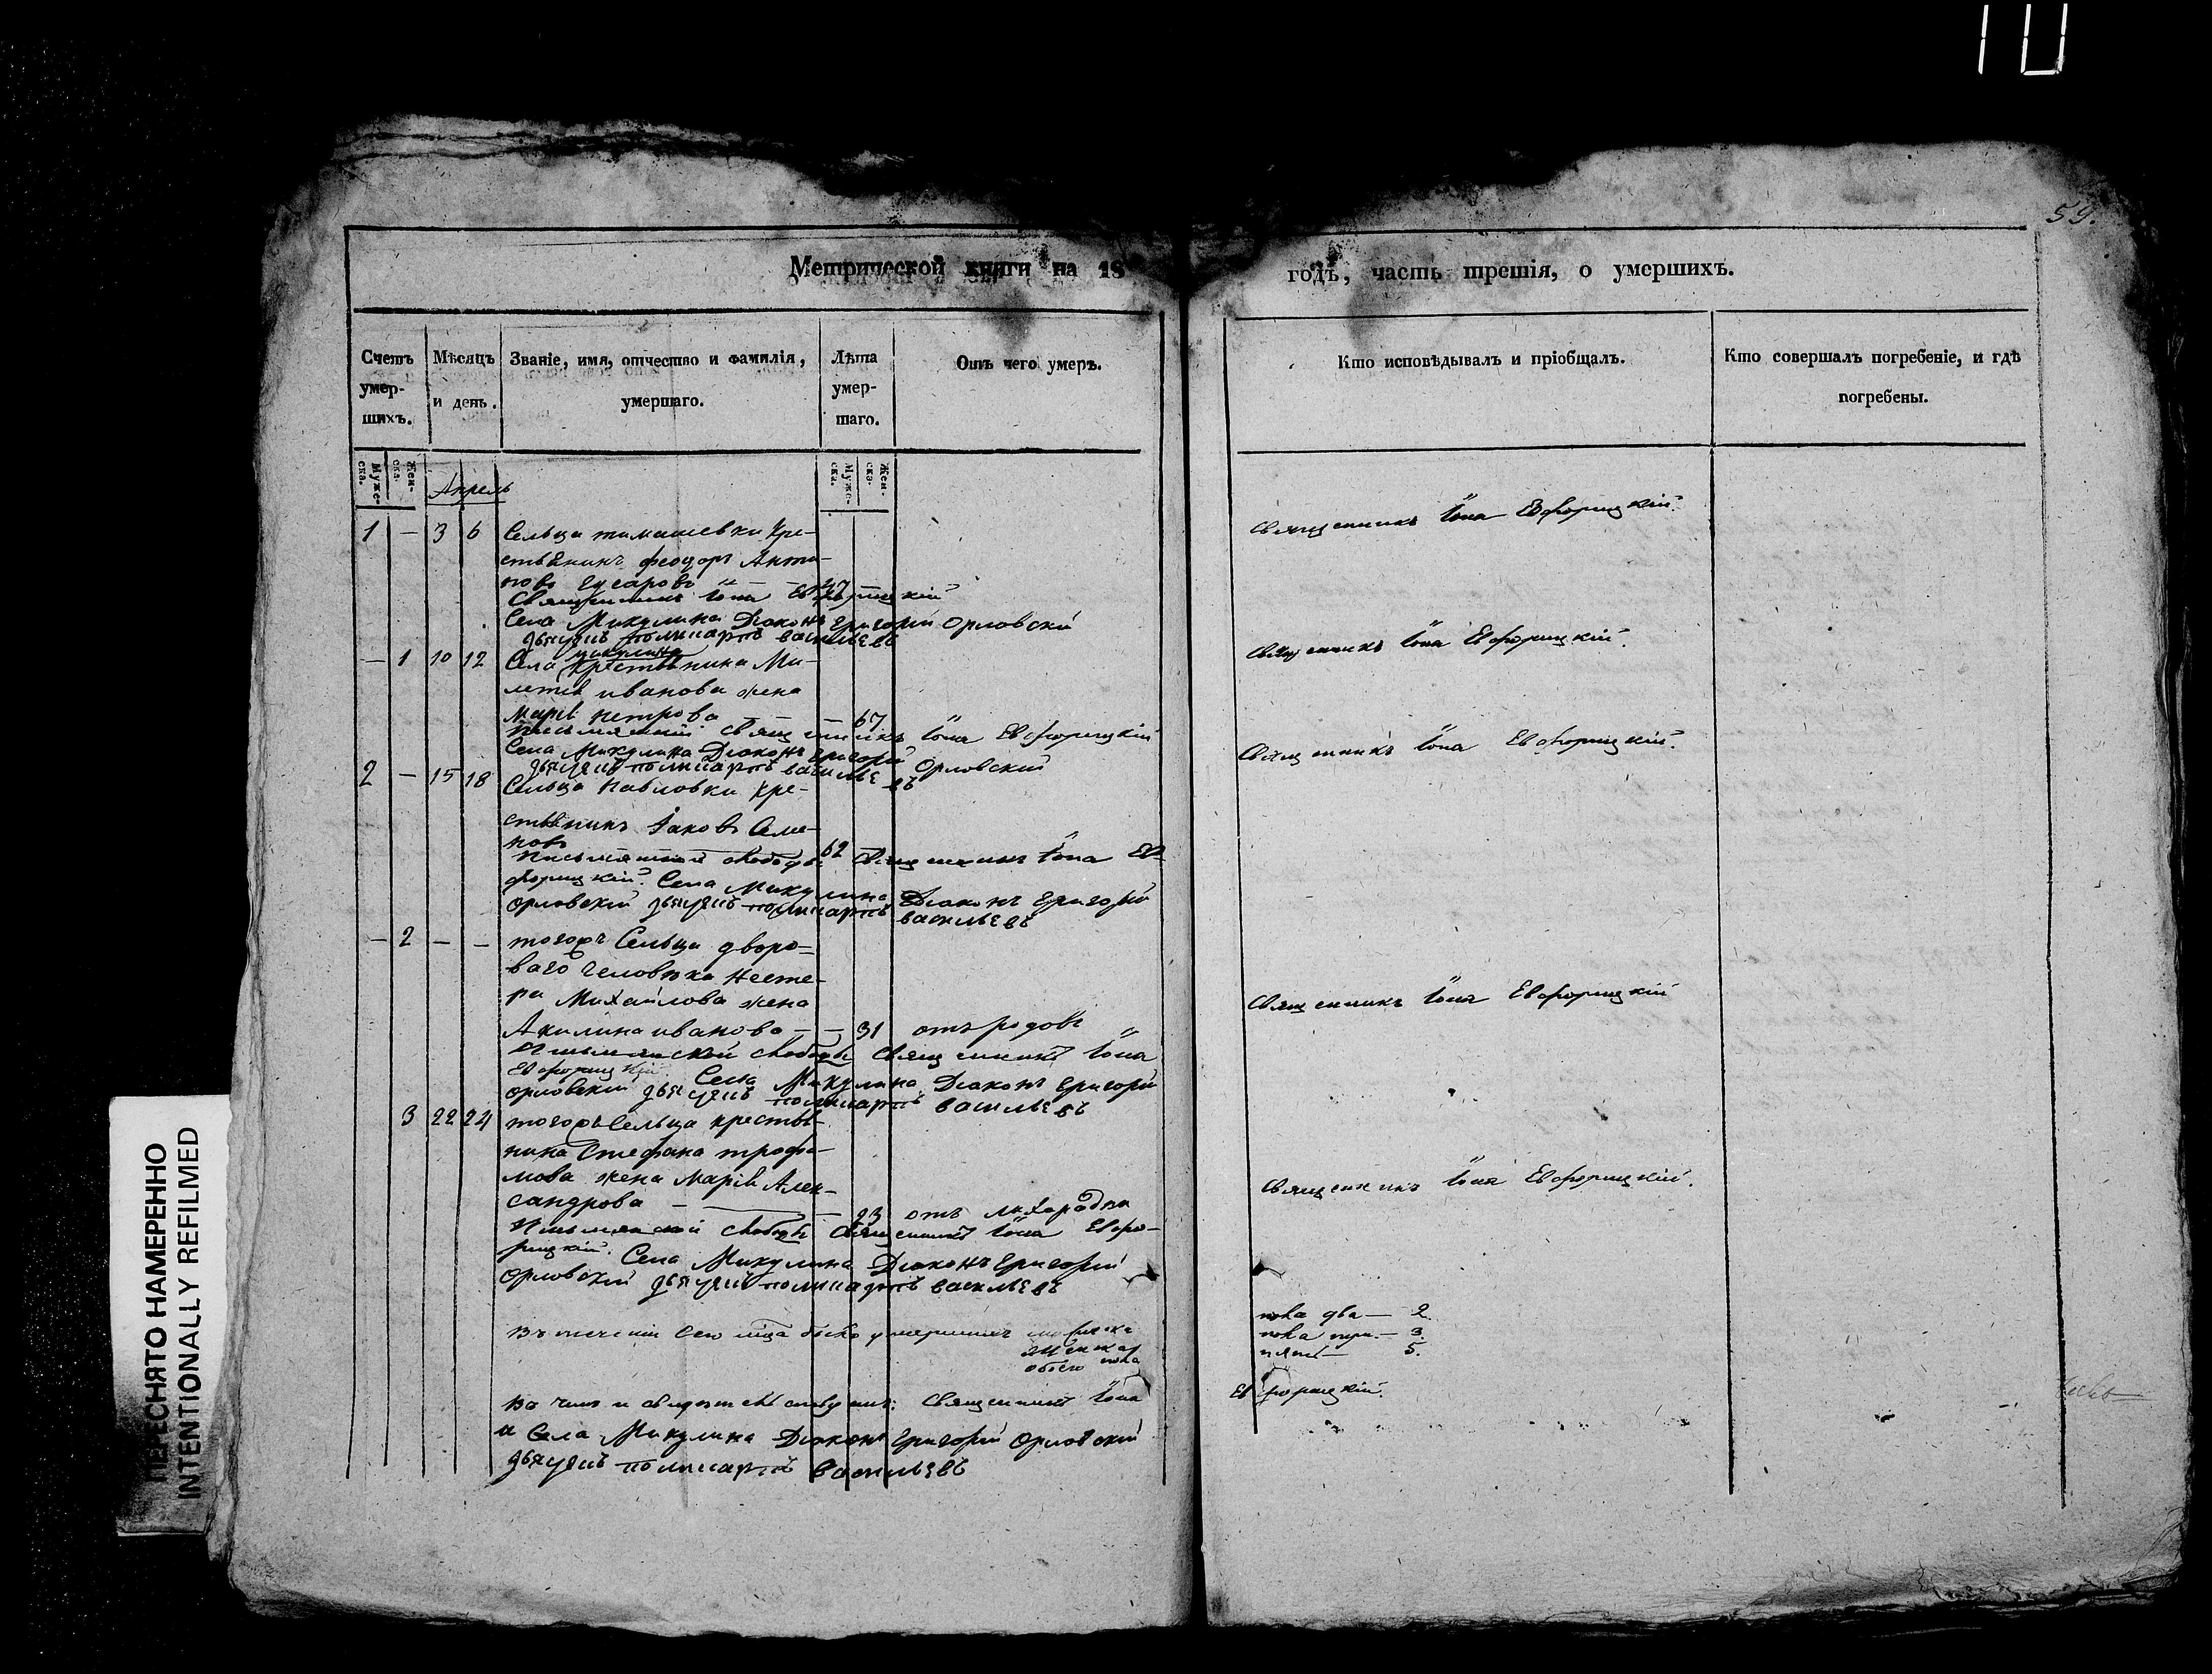 10
59.
Метрической книги на 18
годъ, часть третія, о умершихъ.
Счетъ умер-шихъ.
Мѣсяцъ и день.
Званіе, имя, отчество и фамилія, умершаго.
Лѣта умер-шаго.
Отъ чего умеръ.
Кто исповѣдывалъ и пріобщалъ.
Кто совершалъ погребеніе, и гдѣ погребены.
Муже-ска.
Жен-ска.
Муже-ска.
Жен-ска.
Апрель
1 — 3 6 Сельца тимашевки Кре-
стьянинъ феодоръ Анти-
повъ Гусаровъ 47
Священникъ Іона Евфорицкій
Села Микулина Діаконъ Григорій Орловскій
дьячекъ поликарпъ васильевъ
Священникъ Іона Евфорицкій.
— 1 10 12 Села микулина Крестьянина Ми-
летія иванова жена
Марія петрова — — 67
священникъ Іона Евфорицкій
Села Микулина Діаконъ Григорій Орловскій
дьячекъ поликарпъ васильевъ
Священникъ Іона Евфорицкій.
2 — 15 18 Сельца Павловки Кре-
стьянинъ Іаковъ Семе-
новъ 62
слободы Священникъ Іона Ев-
форицкій. Села Микулина Діаконъ Григорій
Орловскій дьячекъ поликарпъ васильевъ
Священникъ Іона Евфорицкій.
— 2 — — тогожъ Сельца дворо-
ваго человѣка Несте-
ра Михайлова жена
Акилина иванова — — 31 отъ родовъ
слободы Священникъ Іона
Евфорицкій. Села Микулина Діаконъ Григорій
Орловскій дьячекъ поликарпъ васильевъ
Священникъ Іона Евфорицкій
3 22 24 тогожъ Сельца крестья-
нина Стефана трофи-
мова жена Марія Алек-
сандрова — — 23 отъ лихорадки
слободы Священникъ Іона Евфо-
рицкій. Села Микулина Діаконъ Григорій
Орловскій дьячекъ поликарпъ васильевъ
Священникъ Іона Евфорицкій.
Въ теченіи сего мѣсца было умершихъ мужеска
пола два — 2.
женска
пола три — 3.
обоего пола
пять — 5.
Въ чемъ и свидѣтельствуютъ: Священникъ Іона
Евфорицкій.
и Села Микулина Діаконъ Григорій Орловскій
дьячекъ поликарпъ васильевъ
ПЕРЕСНЯТО НАМЕРЕННО
INTENTIONALLY REFILMED